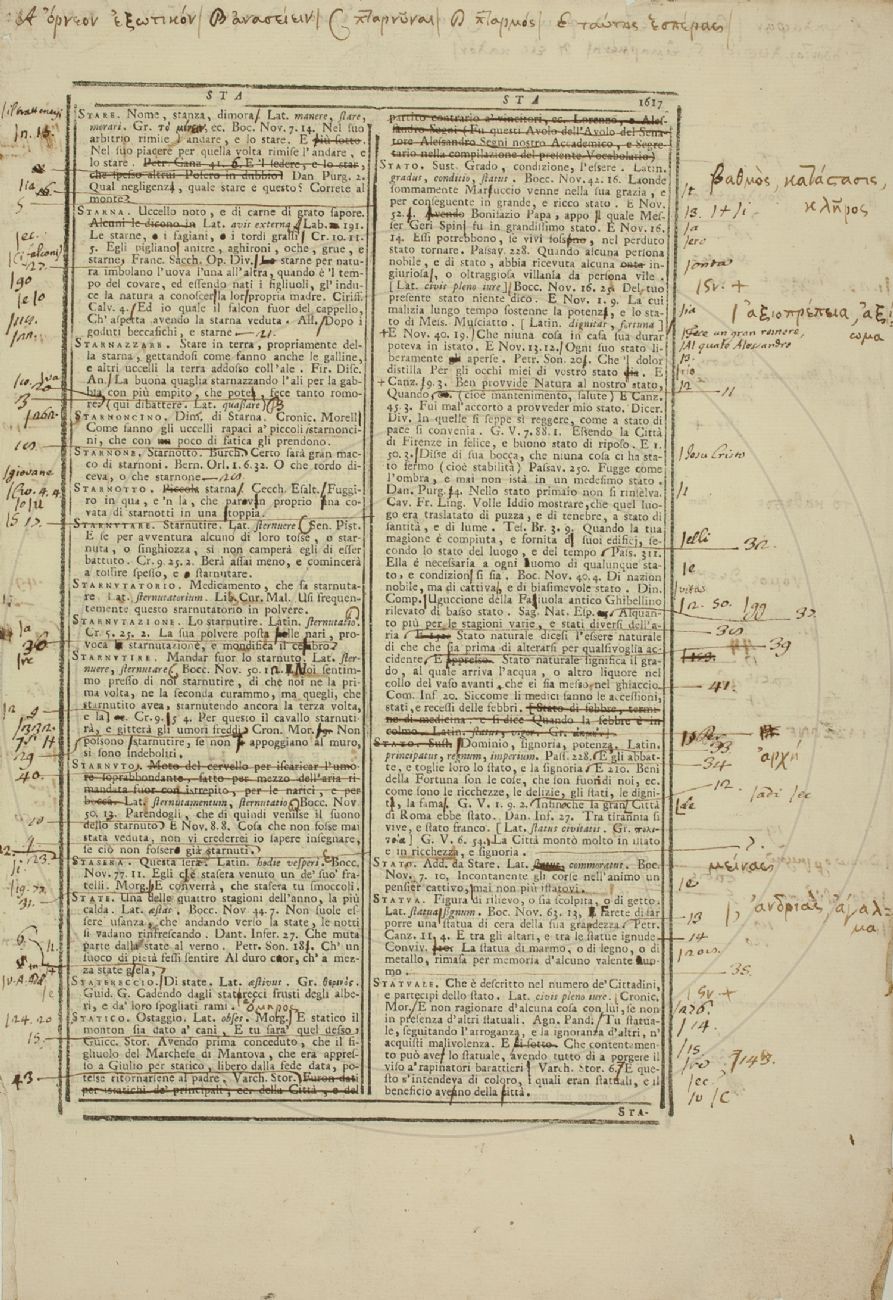 A ὄρνεον ἐξωτικόν / B ἀνασείειν / C πταρνῦναι / D πταρμός / E ταύτης ἑσπέρας /
STA
STARE. Nome, stanza, dimora. Lat. manere, stare,
morari. Gr. ec. Boc. Nov. 7. 14. Nel suo
arbitrio rimise l'andare, e lo stare. E più sotto.
Nel suo piacere per quella volta rimise l'andare, e
lo stare. Petr. Canz. 41. 6. E 'l sedere, e lo star,
che spesso altrui Polero in dubbio. Dan Purg. 2.
Qual negligenza, quale stare è questo? Correte al
monte?
STARNA. Uccello noto, e di carne di grato sapore.
Alcuni le dicono in Lat. avis externa. Lab. 191.
Le starne, e i fagiani, e i tordi grassi Cr. 10. 11.
5. Egli pigliano anitre, aghironi, oche, grue, e
starne, Franc. Sacch. Op. Div. Le starne per natu-
ra imbolano l'uova l'una all'altra, quando è 'l tem-
po del covare, ed essendo nati i figliuoli, gl'indu-
ce la natura a conoscer la lor propria madre. Ciriff.
Calv. 4. Ed io quale il falcon fuor del cappello,
Ch' aspetta avendo la starna veduta. All. Dopo i
goduti beccafichi, e starne
STARNAZZARE. Stare in terra, propriamente del-
la starna, gettandosi come fanno anche le galline,
e altri uccelli la terra addosso coll'ale. Fir. Disc.
An. La buona quaglia starnazzando l'ali per la gab-
bia con più empito, che potea, fece tanto romo-
re (qui dibattere. Lat. quassare)
STARNONCINO. Dim. di Starna. Cronic. Morell.
Come fanno gli uccelli rapaci a' piccoli starnonci-
ni, che con poco di fatica gli prendono.
STARNONE. Starnotto. Burch. Certo sarà gran mac-
co di starnoni. Bern. Orl. 1. 6. 32. O che tordo di-
ceva, o che starnone
STARNOTTO. Piccola starna. Cecch. Esalt. Fuggi-
ro in qua, e 'n la, che parevan proprio una co-
vata di starnotti in una stoppia.
STARNUTARE. Starnutire. Lat. sternuere. Sen. Pist.
E se per avventura alcuno di loro tosse, o star-
nuta, o singhiozza, si non camperà egli di esser
battuto. Cr. 9. 25. 2. Berà assai meno, e comincerà
a tossire spesso, e starnutare.
STARNUTATORIO. Medicamento, che fa starnuta-
re Lat. sternutatorium. Lib. Cur. Mal. Usi frequen-
temente questo starnutatorio in polvere.
STARNUTAZIONE. Lo starnutire. Latin. sternutatio.
Cr. 5. 25. 2. La sua polvere posta nelle nari, pro-
voca starnutazione, e mondifica il celabro.
STARNUTIRE. Mandar fuor lo starnuto. Lat. ster-
nuere, sternutare. Bocc. Nov. 50. Noi sentim-
mo presso di noi starnutire, di che noi ne la pri-
ma volta, ne la seconda curammo, ma quegli, che
starnutito avea, starnutendo ancora la terza volta,
e la Cr. 9. 4. Per questo il cavallo starnuti-
rà, e gitterà gli umori freddi. Cron. Mor. Non
possono starnutire, se non s'appoggiano al muro,
sì sono indeboliti.
STARNUTO. Moto del cervello per iscaricar l'umo-
re soprabbondante, fatto per mezzo dell'aria ri-
mandata fuor con istrepito, per le narici, e per
bocca. Lat. sternutamentum, sternutatio. Bocc. Nov.
50. 13. Parendogli, che di quindi venisse il suono
dello starnuto. E Nov. 8. 8. Cosa che non fosse mai
stata veduta, non vi crederrei io sapere insegnare,
se ciò non fossero già starnuti.
STASERA. Questa sera. Latin. hodie vesperi. Bocc.
Nov. 77. 11. Egli c'è stasera venuto un de' suo' fra-
telli. Morg. E converrà, che stasera tu smoccoli.
STATE. Una delle quattro stagioni dell'anno, la più
calda. Lat. æstas. Bocc. Nov. 44. 7. Non suole es-
sere usanza, che andando verso la state, le notti
si vadano rinfrescando. Dant. Infer. 27. Che muta
parte dalla state al verno. Petr. Son. 181. Ch' un
fuoco di pietà fessi sentire Al duro cuor, ch' a mez-
za state gela,
STATERECCIO. Di state. Lat. æstivus. Gr. θερινός.
Guid. G. Cadendo dagli staterecci frusti degli albe-
ri, e da' loro spogliati rami.
ὅμηρος
STATICO. Ostaggio. Lat. obses. Morg. E statico il
monton sia dato a' cani, E tu sara' quel desso.
Guicc. Stor. Avendo prima conceduto, che il fi-
gliuolo del Marchese di Mantova, che era appres-
so a Giulio per statico, libero dalla fede data, po-
tesse ritornarsene al padre. Varch. Stor. Furon dati
per istatichi de' principali, ec. della Città, e del
STA
1617
partito contrario a' vincitori, ec. Lorenzo, e Ales-
sandro Segni (Fu questi Avolo dell'Avolo del Sena-
tore Alessandro Segni nostro Accademico, e Segre-
tario nella compilazione del presente Vocabolario)
STATO. Sust. Grado, condizione, l'essere. Latin.
gradus, conditio, status. Bocc. Nov. 42. 16. Laonde
sommamente Martuccio venne nella sua grazia, e
per conseguente in grande, e ricco stato. E Nov.
52. Avendo Bonifazio Papa, appo il quale Mes-
ser Geri Spini fu in grandissimo stato. E Nov. 16.
14. Essi potrebbono, se vivi fossono, nel perduto
stato tornare. Passav. 228. Quando alcuna persona
nobile, e di stato, abbia ricevuta alcuna onta in-
giuriosa, o oltraggiosa villania da persona vile.
[Lat. civis pleno iure] Bocc. Nov. 16. 25. Del tuo
presente stato niente dico. E Nov. 1. 9. La cui
malizia lungo tempo sostenne la potenza, e lo sta-
to di Mess. Musciatto. [Latin. dignitas, fortuna]
E Nov. 40. 19. Che niuna cosa in casa sua durar
poteva in istato. E Nov. 13. 12. Ogni suo stato li-
beramente gli aperse. Petr. Son. 20. Che 'l dolor
distilla Per gli occhi miei di vostro stato E
Canz. 19. 3. Ben provvide Natura al nostro stato,
Quando (cioè mantenimento, salute) E Canz.
45. 3. Fui mal'accorto a provveder mio stato. Dicer.
Div. In quelle si seppe sì reggere, come a stato di
pace si convenia. G. V. 7. 88. 1. Essendo la Città
di Firenze in felice, e buono stato di riposo. E 1.
50. 3. Disse di sua bocca, che niuna cosa ci ha sta-
to fermo (cioè stabilità) Passav. 250. Fugge come
l'ombra, e mai non istà in un medesimo stato.
Dan. Purg. 14. Nello stato primaio non si rinselva.
Cav. Fr. Ling. Volle Iddio mostrare, che quel luo-
go era traslatato di puzza, e di tenebre, a stato di
santità, e di lume. Tes. Br. 3. 9. Quando la tua
magione è compiuta, e fornita di suoi edificj, se-
condo lo stato del luogo, e del tempo. Pass. 311.
Ella è necessaria a ogni uomo di qualunque sta-
to, e condizion si sia. Boc. Nov. 40. 4. Di nazion
nobile, ma di cattiva, e di biasimevole stato. Din.
Comp. Uguccione della Faggiuola antico Ghibellino
rilevato di basso stato. Sag. Nat. Esp. Alquan-
to più per le stagioni varie, e stati diversi dell'a-
ria. E 190. Stato naturale dicesi l'essere naturale
di che che sia prima di alterarsi per qualsivoglia ac-
cidente. E appresso. Stato naturale significa il gra-
do, al quale arriva l'acqua, o altro liquore nel
collo del vaso avanti, che ei sia messo nel ghiaccio.
Com. Inf. 20. Siccome li medici fanno le accessioni,
stati, e recessi delle febbri. [Stato di febbre, termi-
ne di medicina: e si dice Quando la febbre è in
colmo. Latin. status, vigor. Gr.
STATO. Sust. Dominio, signoria, potenza. Latin.
principatus, regnum, imperium. Pass. 228. E gli abbat-
te, e toglie loro lo stato, e la signoria. E 210. Beni
della Fortuna son le cose, che son fuori di noi, ec.
come sono le ricchezze, le delizie, gli stati, le digni-
tà, la fama. G. V. 1. 9. 2. Infinoche la gran Città
di Roma ebbe stato. Dan. Inf. 27. Tra tirannia si
vive, e stato franco. [Lat. status civitatis. Gr. πολι-
τεία] G. V. 6. 54. La Città montò molto in istato
e in ricchezza, e signoria.
STATO. Add. da Stare. Lat. status, commoratus. Boc.
Nov. 7. 10. Incontanente gli corse nell'animo un
pensier cattivo, mai non più istatovi.
STATUA. Figura di rilievo, o sia scolpita, o di getto.
Lat. statua, signum. Boc. Nov. 63. 13. Farete di far
porre una statua di cera della sua grandezza. Petr.
Canz. 11. 4. E tra gli altari, e tra le statue ignude
Conviv. La statua di marmo, o di legno, o di
metallo, rimasa per memoria d'alcuno valente uo-
mo.
STATUALE. Che è descritto nel numero de' Cittadini,
e partecipi dello stato. Lat. civis pleno iure. Cronic.
Mor. E non ragionare d'alcuna cosa con lui, se non
in presenza d'altri statuali. Agn. Pand. Tu statua-
le, seguitando l'arroganza, e la ignoranza d'altri, n'
acquisti malivolenza. E di sotto. Che contentamen-
to può aver lo statuale, avendo tutto dì a porgere il
viso a' rapinatori barattieri. Varch. Stor. 6. E que-
sto s'intendeva di coloro, i quali eran statuali, e il
beneficio avevano della Città.
STA-
βαθμός, κατάστασις,
κλῆρος
ἀξιοπρέπεια, ἀξί-
ωμα
fece un gran romore,
Al quale Alessandro
Iesu Cristo
ἀρχή
μείνας
ἀνδριάς, ἄγαλ-
μα